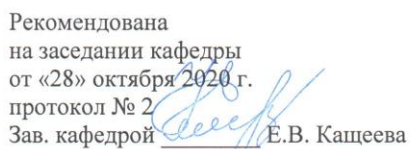 Рекомендована
на заседании кафедры
от «28» октября 2020 г.
протокол № 2
Зав. кафедрой ________ Е.В. Кащеева